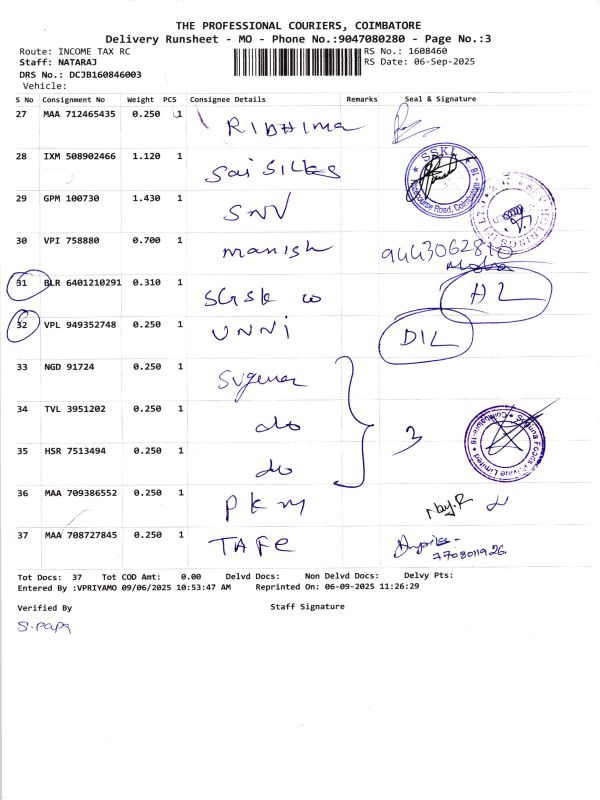 THE PROFESSIONAL COURIERS, COIMBATORE
Delivery Runsheet - MO - Phone No.:9047080280 - Page No.:3
Route: INCOME TAX RC RS No.: 1608460
Staff: NATARAJ RS Date: 06-Sep-2025
DRS No.: DCJB160846003
Vehicle:
S No Consignment No Weight PCS Consignee Details Remarks Seal & Signature
27 MAA 712465435 0.250 1 RIDHIMA
28 IXM 508902466 1.120 1 Sai SILKS SSKL
29 GPM 100730 1.430 1 SNV
30 VPI 758880 0.700 1 manish 9443062810
31 BLR 6401210291 0.310 1 HL
32 VPL 949352748 0.250 1 UNNi DIL
33 NGD 91724 0.250 1
34 TVL 3951202 0.250 1 do 3
35 HSR 7513494 0.250 1 do
36 MAA 709386552 0.250 1 PKM
37 MAA 708727845 0.250 1 TAFE
7708011926
Tot Docs: 37 Tot COD Amt: 0.00 Delvd Docs: Non Delvd Docs: Delvy Pts:
Entered By :VPRIYAMO 09/06/2025 10:53:47 AM Reprinted On: 06-09-2025 11:26:29
Verified By Staff Signature
S. papa